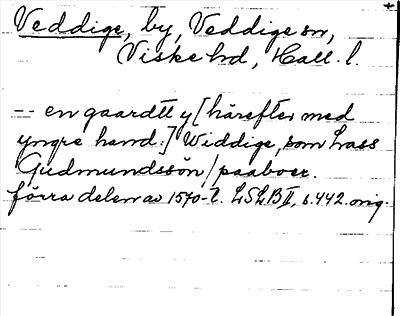 Veddige, by, Veddige sn,
Viske hd, Hall. l.
-- en gaardtt y [härefter med
yngre hand:] Widdige, som Lass
Gudmundssön / paaboer.
förra delen av 1570-t. LSLB II, s. 442. orig.